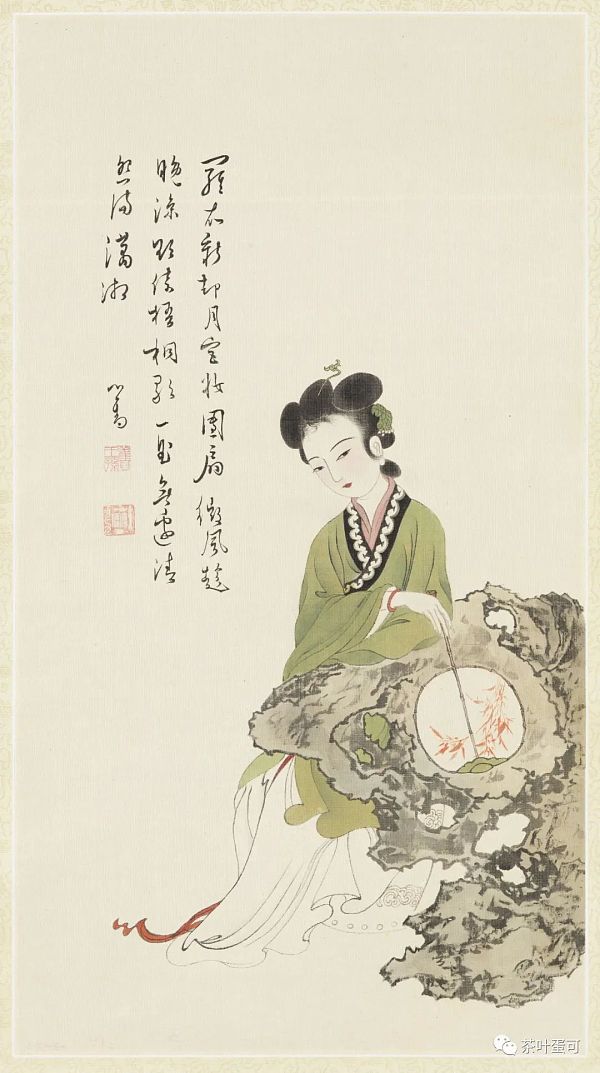 羅衣新卸月宮妝團扇微風趁
晚涼倚梧桐歌一曲無邊清
怨滿瀟湘
心畬
茶叶蛋可